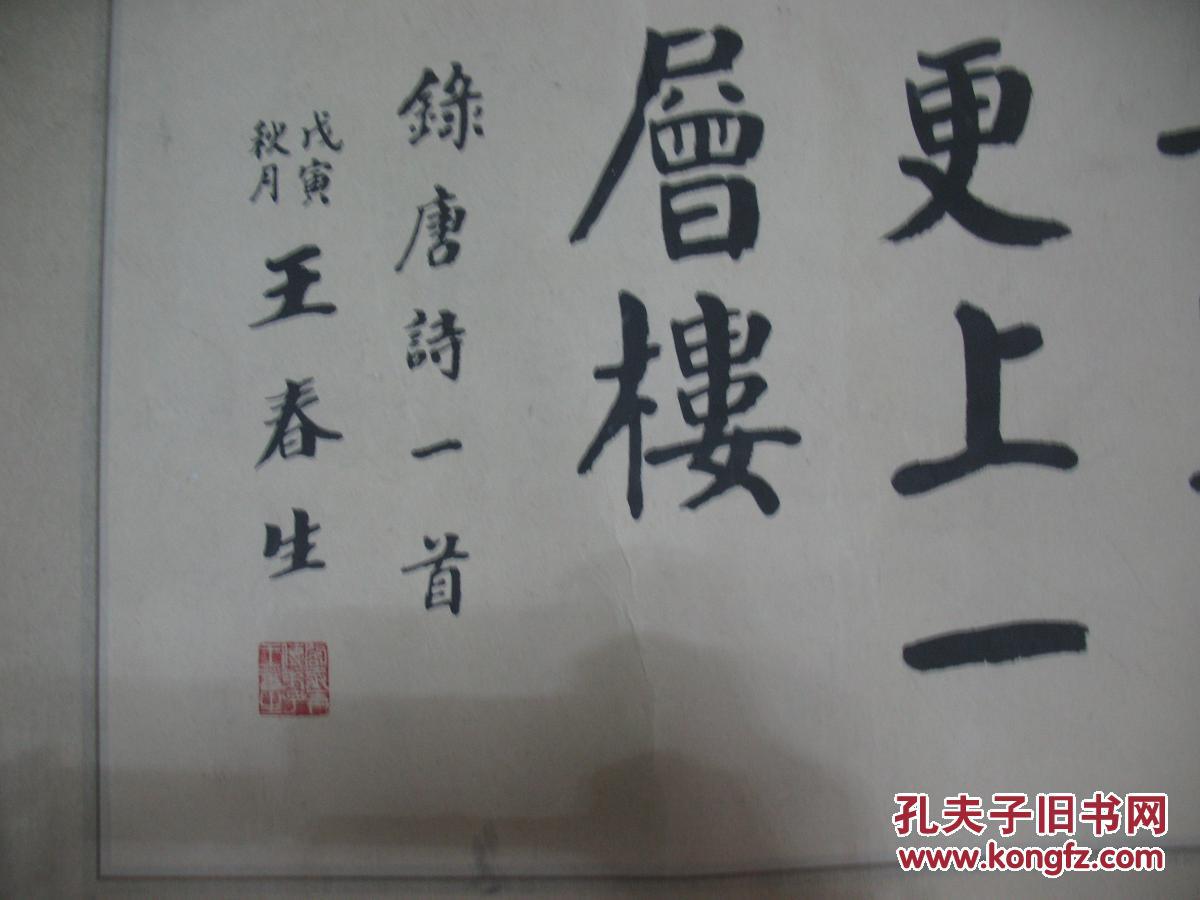 更上一
層樓
錄唐詩一首
戊寅
秋月
王春生
孔夫子旧书网
www.kongfz.com